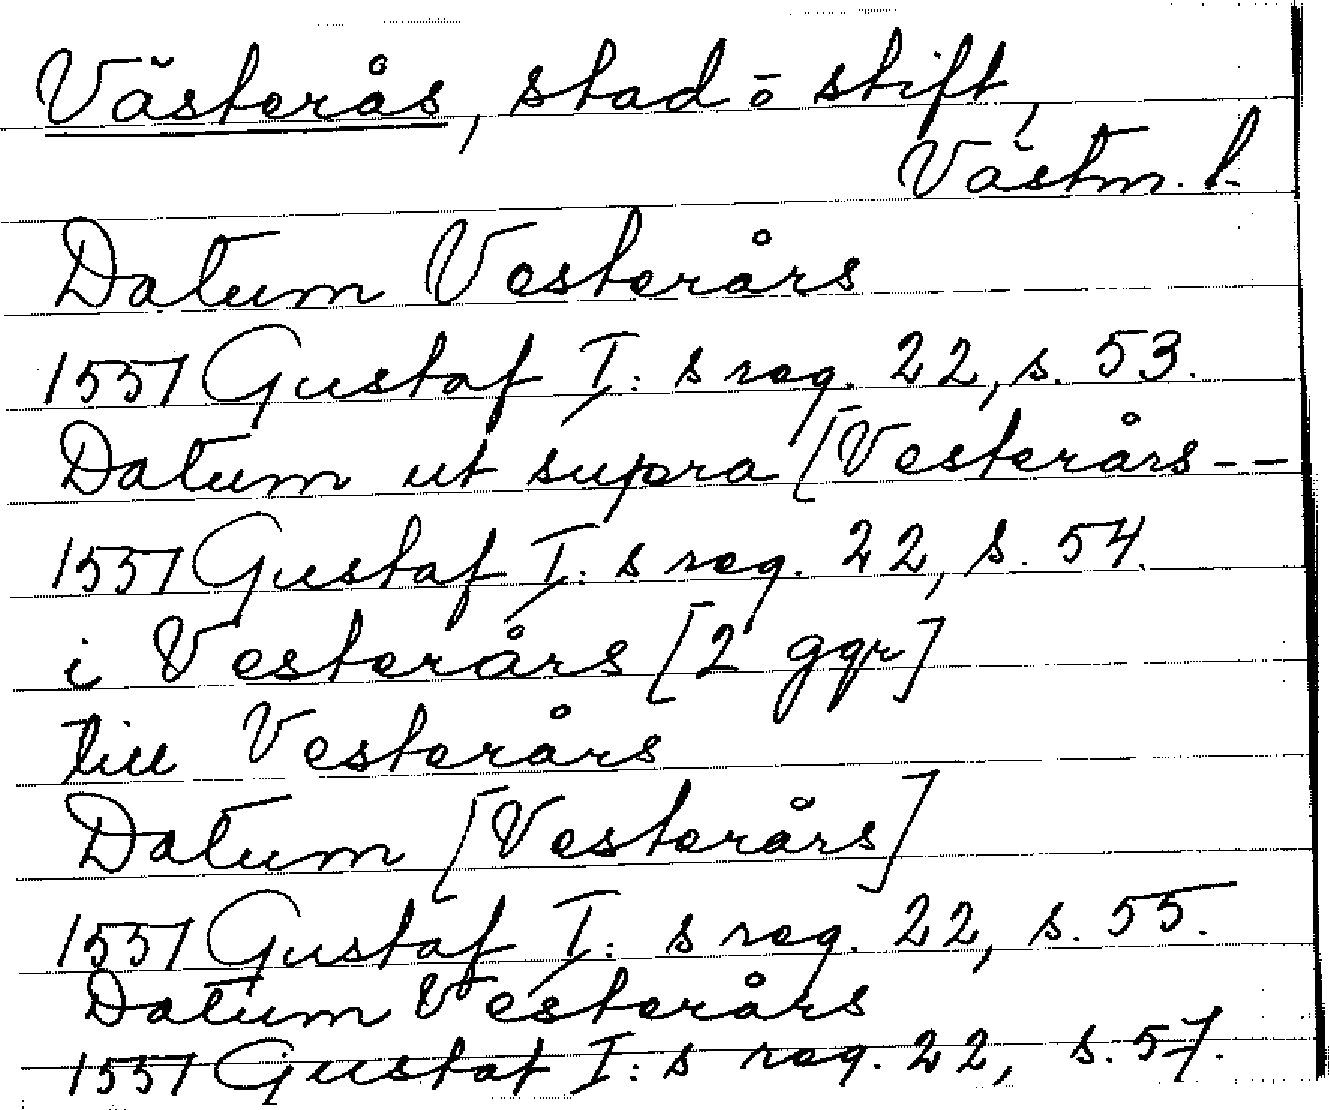 Västerås, stad o stift,
Västm. l.
Datum Vesterårs
1551 Gustaf I:s reg. 22, s. 53.
Datum ut supra [Vesterårs--
1551 Gustaf I:s reg. 22, s. 54.
i Vesterårs [2 ggr]
till Vesterårs
Datum [Vesterårs]
1551 Gustaf I:s reg. 22, s. 55.
Datum Vesterårs
1551 Gustaf I:s reg. 22, s. 57.